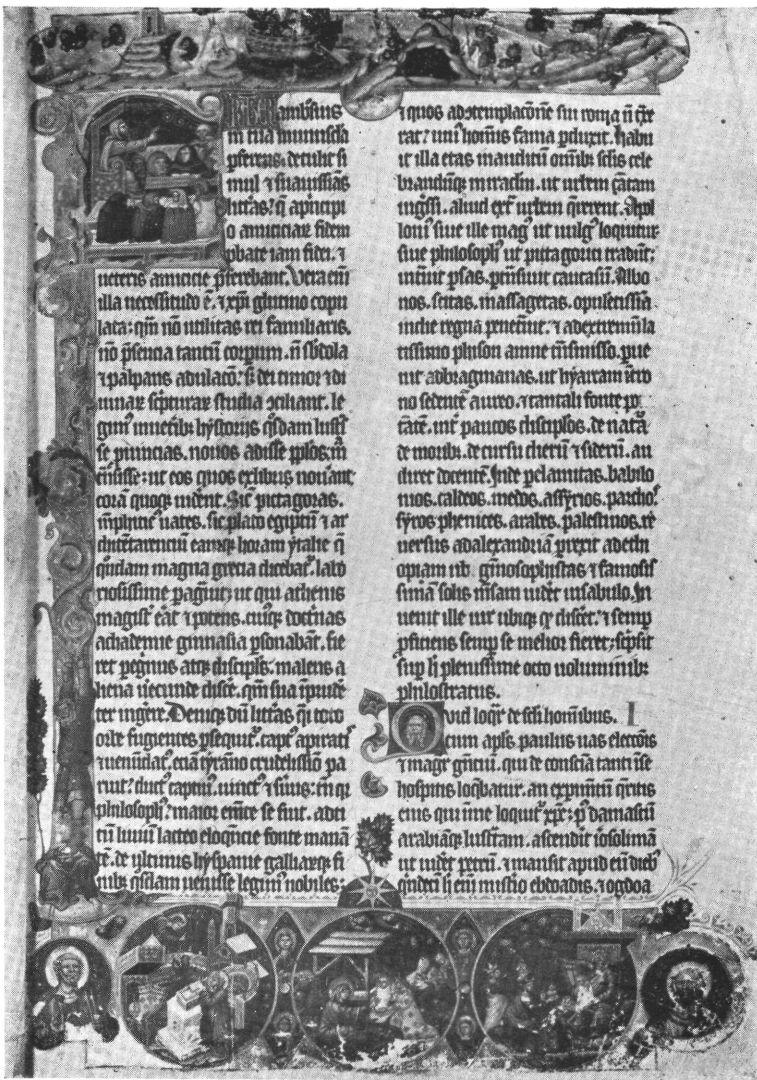 ambrosius
m tua munuscla
pferens. detulit si
mul ⁊ suauissias
litt̄as. q̄ apncipi
o amiciciar fidem
pbate iam fidei. ⁊
ueteris amicicie p̄ferebant. Vera em̄
illa necessitudo ē. ⁊ xp̄i glutino copu
lata: qm̄ nō utilitas rei familiaris.
nō p̄sencia tantū corpum. n̄ sb̄dola
⁊ palpans adulacō. s; dei timor ⁊ di
uinar sc̄pturar studia ɔciliant. le
gimꝰ inuetib; hystorijs qs̄dam lust̄
se puincias. nouos adisse pp̄los. m̄
ut eos quos exlibris nouāt
corā quoq; uident̄. Sic pictagoras.
mphitic uates. sic plato egiptū ⁊ ar
chitētarencium eamq; horam ytalie q̄
qn̄dam magna grecia dicebat᷑. labo
riosissime pagͣuit: ut qui athenis
magist̄ eāt ⁊ potens. cuiꝰq; doctn̄as
achademie gimnasia psonabāt. fie
ret pegͥnus atq; discipls. malens a
liena uerecunde disce. qm̄ sua īpude
ter inger̄e. Deniq; dū litt̄as q̄i toto
orbe fugientes psequit᷑. captꝰ apiratis
⁊ uenūdatꝰ. eciā tyrāno crudelissimo pa
ruit. ductꝰ captiuꝰ. uinctꝰ ⁊ suus: tn̄ qi
philosophꝰ maior emēte se fuit. adti
tū liuiū lacteo eloqn̄cie fonte manā
tē. de ultimis hyspanie galliarq; fi
nib; qs̄dam uenisse legimꝰ nobiles:
⁊ quos adɔtemplacōne sui roma n̄ txͤe
rat: uniꝰ hoīnis fama pduxit. Habu
it illa etas inauditū omīb; sclis cele
brandūq; miraclm. ut urbem tātam
inḡssi. aliud extͣ urbem q̄rerent. Apl
loniꝰ siue ille magꝰ ut uulgꝰ loquitur
siue philosophꝰ ut pitagorici tradūt:
intͣuit psas. ptͣnsiuit caucasū. Albo
nos. scitas. massagetas. opulētissīa
indie regna penetͣuit. ⁊ adextremū la
tissimo phison amne tͣnsmisso. pue
nit adbragmanas. ut hyarcam ītro
no sedentē aureo. ⁊ tantali fonte po
tātē. intͬ paucos discipłos. de natͣa
de morib; de cursu dierū ⁊ siderū. au
diret docentē. Inde p elamitas. babilo
nios. caldeos. medos. assyrios. parthoꝰ
syros phenices. arabes. palestinos. re
uersus adalexandriā prexit adethi
opiam. ut gͥnosophistas ⁊ famosis
simā solis m̄sam uidēt insabulo. In
uenit ille uir ubiq; qͩ discet̄. ⁊ semp
pficiens semp se melior fieret: sc̄psit
sup h̄ plenissime octo uoluminib;
philostratus.
Qvid loqr̄ de scl̄i hoīnibus. I
cum apls paulus uas elecc̄ōis
⁊ magr̄ gn̄ciū. qui de conscīa tanti īse
hospitis loqb̄atur. an expimtū qr̄itis
eius qui ī me loquit᷑ xp̄c: pꝰ damascū
arabiāq; lustͣtam. ascendit ierosolimā
ut uidet̄ petrū. ⁊ mansit apud eū dieb;
qͥndecī h̄ em̄ mist̄io ebdoadis. ⁊ ogdoa